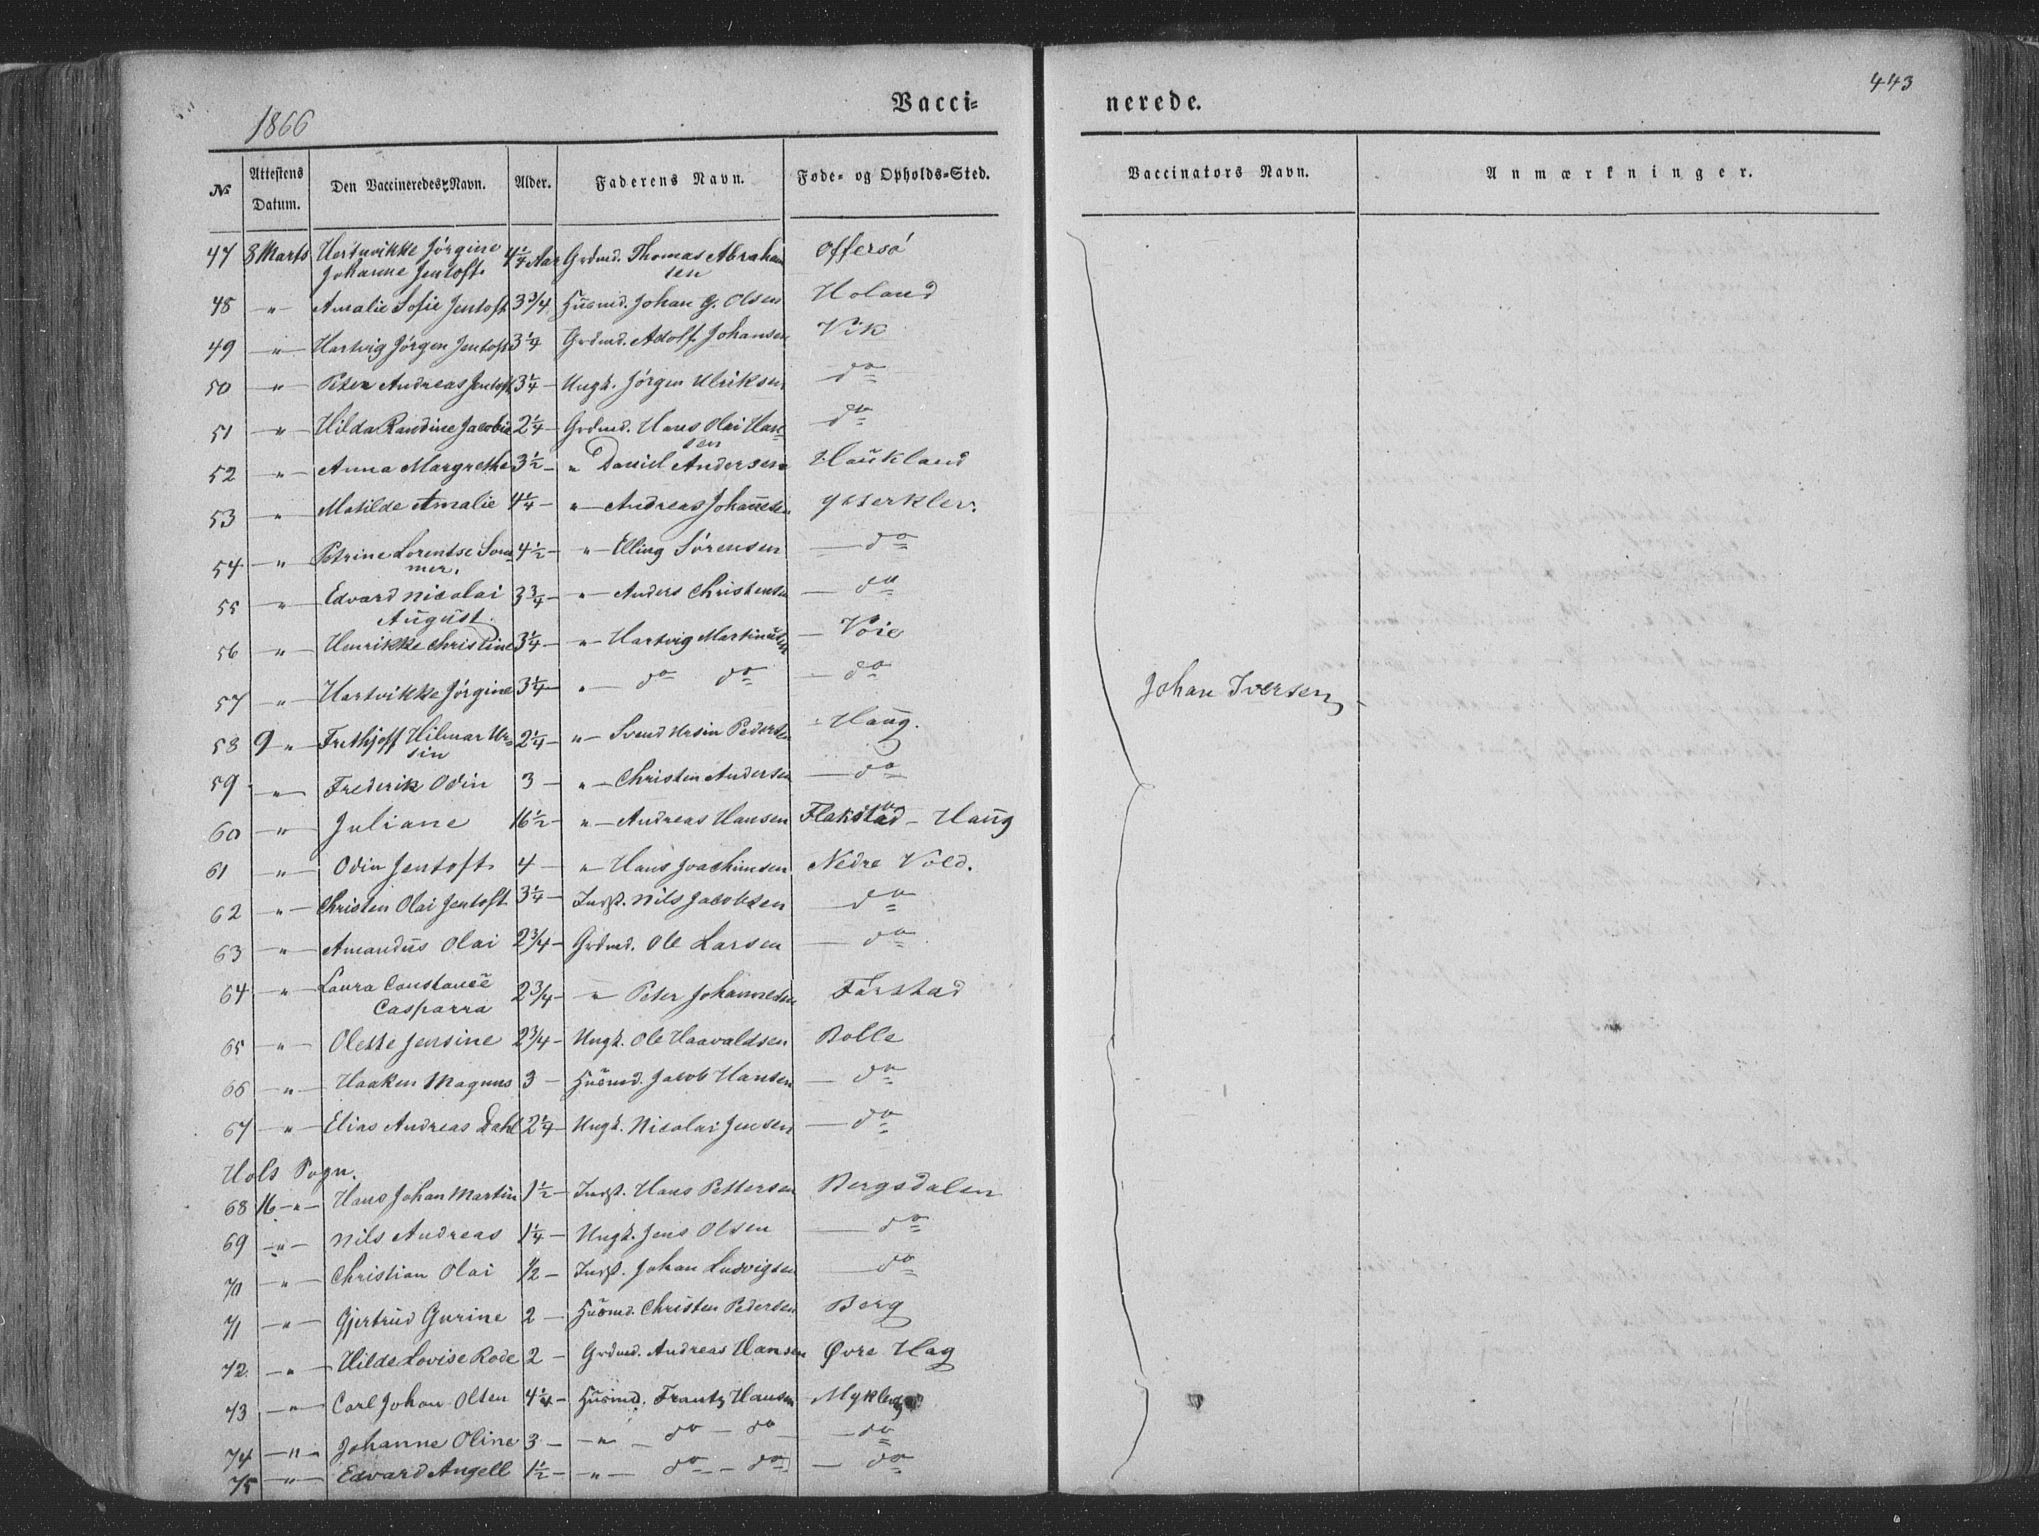 443
Vacci=
nerede.
1866
№ Attestens Datum. Den Vaccineredes Navn. Alder. Faderens Navn. Føde= og Opholds=Sted. Vaccinators Navn. Anmærkninger.
47 8 Marts Hartvikke Jørgine 4 1/4 Aar Grdmd. Thomas Abraham Offersö
Johanne Jentoft sen
48 " Amalie Sofie Jentoft 3 3/4 Huusmd. Johan G. Olsen Holand
49 " Hartvig Jörgen Jentoft 3 1/4 Grdmd. Adolf Johansen Vik
50 " Peter Andreas Jentoft 3 1/4 — Ungk. Jörgen Ulriksen do
51 " Hilda Randine Jacobine 2 1/4 — Grdmd. Hans Olai Han= do
sen
52 " Anna Margrethe 3 1/2 — " Daniel Andersen Haukland
53 " Matilde Amalie 4 1/4 — " Andreas Johannesen Ytterklev.
54 " Petrine Lorentse Som 4 1/2 — " Elling Sörensen — do
mer.
55 " Edvard Nicolai 3 3/4 — " Anders Christensen — do
August.
56 " Henrikke Christine 3 1/4 — " Hartvig Martinussen — Voie
57 " Hartvikke Jörgine 3 1/4 — " do do — do
Johan Iversen
58 9 " Frethjoff Hilmar Ur= 2 1/4 — " Svend Ursin Pedersen Haug.
sin
59 " Frederik Odin 3 — " Christen Andersen — do
60 " Juliane 16 1/2 — " Andreas Hansen Flakstad — Haug
61 " Odin Jentoft 4 — " Hans Joachimsen Nedre Vold.
62 " Christen Olai Jentoft 3 1/4 — Indst. Nils Jacobsen — do
63 " Amandus Olai 2 3/4 — Grdmd. Ole Larsen — do
64 " Laura Constance 2 3/4 — " Peter Johannesen Farstad
Casparra
65 " Olette Jensine 2 3/4 — Ungk. Ole Haavaldsen Bolle
66 " Haaken Magnus 3 — Huusmd. Jacob Hansen — do
67 " Elias Andreas Dahl 2 1/4 — Ungk. Nicolai Jensen — do
Hols Sogn.
68 16 " Hans Johan Martin 1 1/2 — Indst. Hans Pettersen Bergsdalen
69 " Nils Andreas 1 1/4 — Ungk. Jens Olsen — do
70 " Christian Olai 1/2 — Indst. Johan Ludvigsen — do
71 " Gjertrud Gurine 2 — Huusmd. Christen Pedersen Berg
72 " Hilde Lovise Rode 2 — Grdmd. Andreas Hansen Øvre Hag
73 " Carl Johan Olsen 4 1/4 — Huusmd. Frantz Hansen
74 " Johanne Oline 3 — " — do — do — do
75 " Edvard Angell 1 1/2 — " — do — do — do